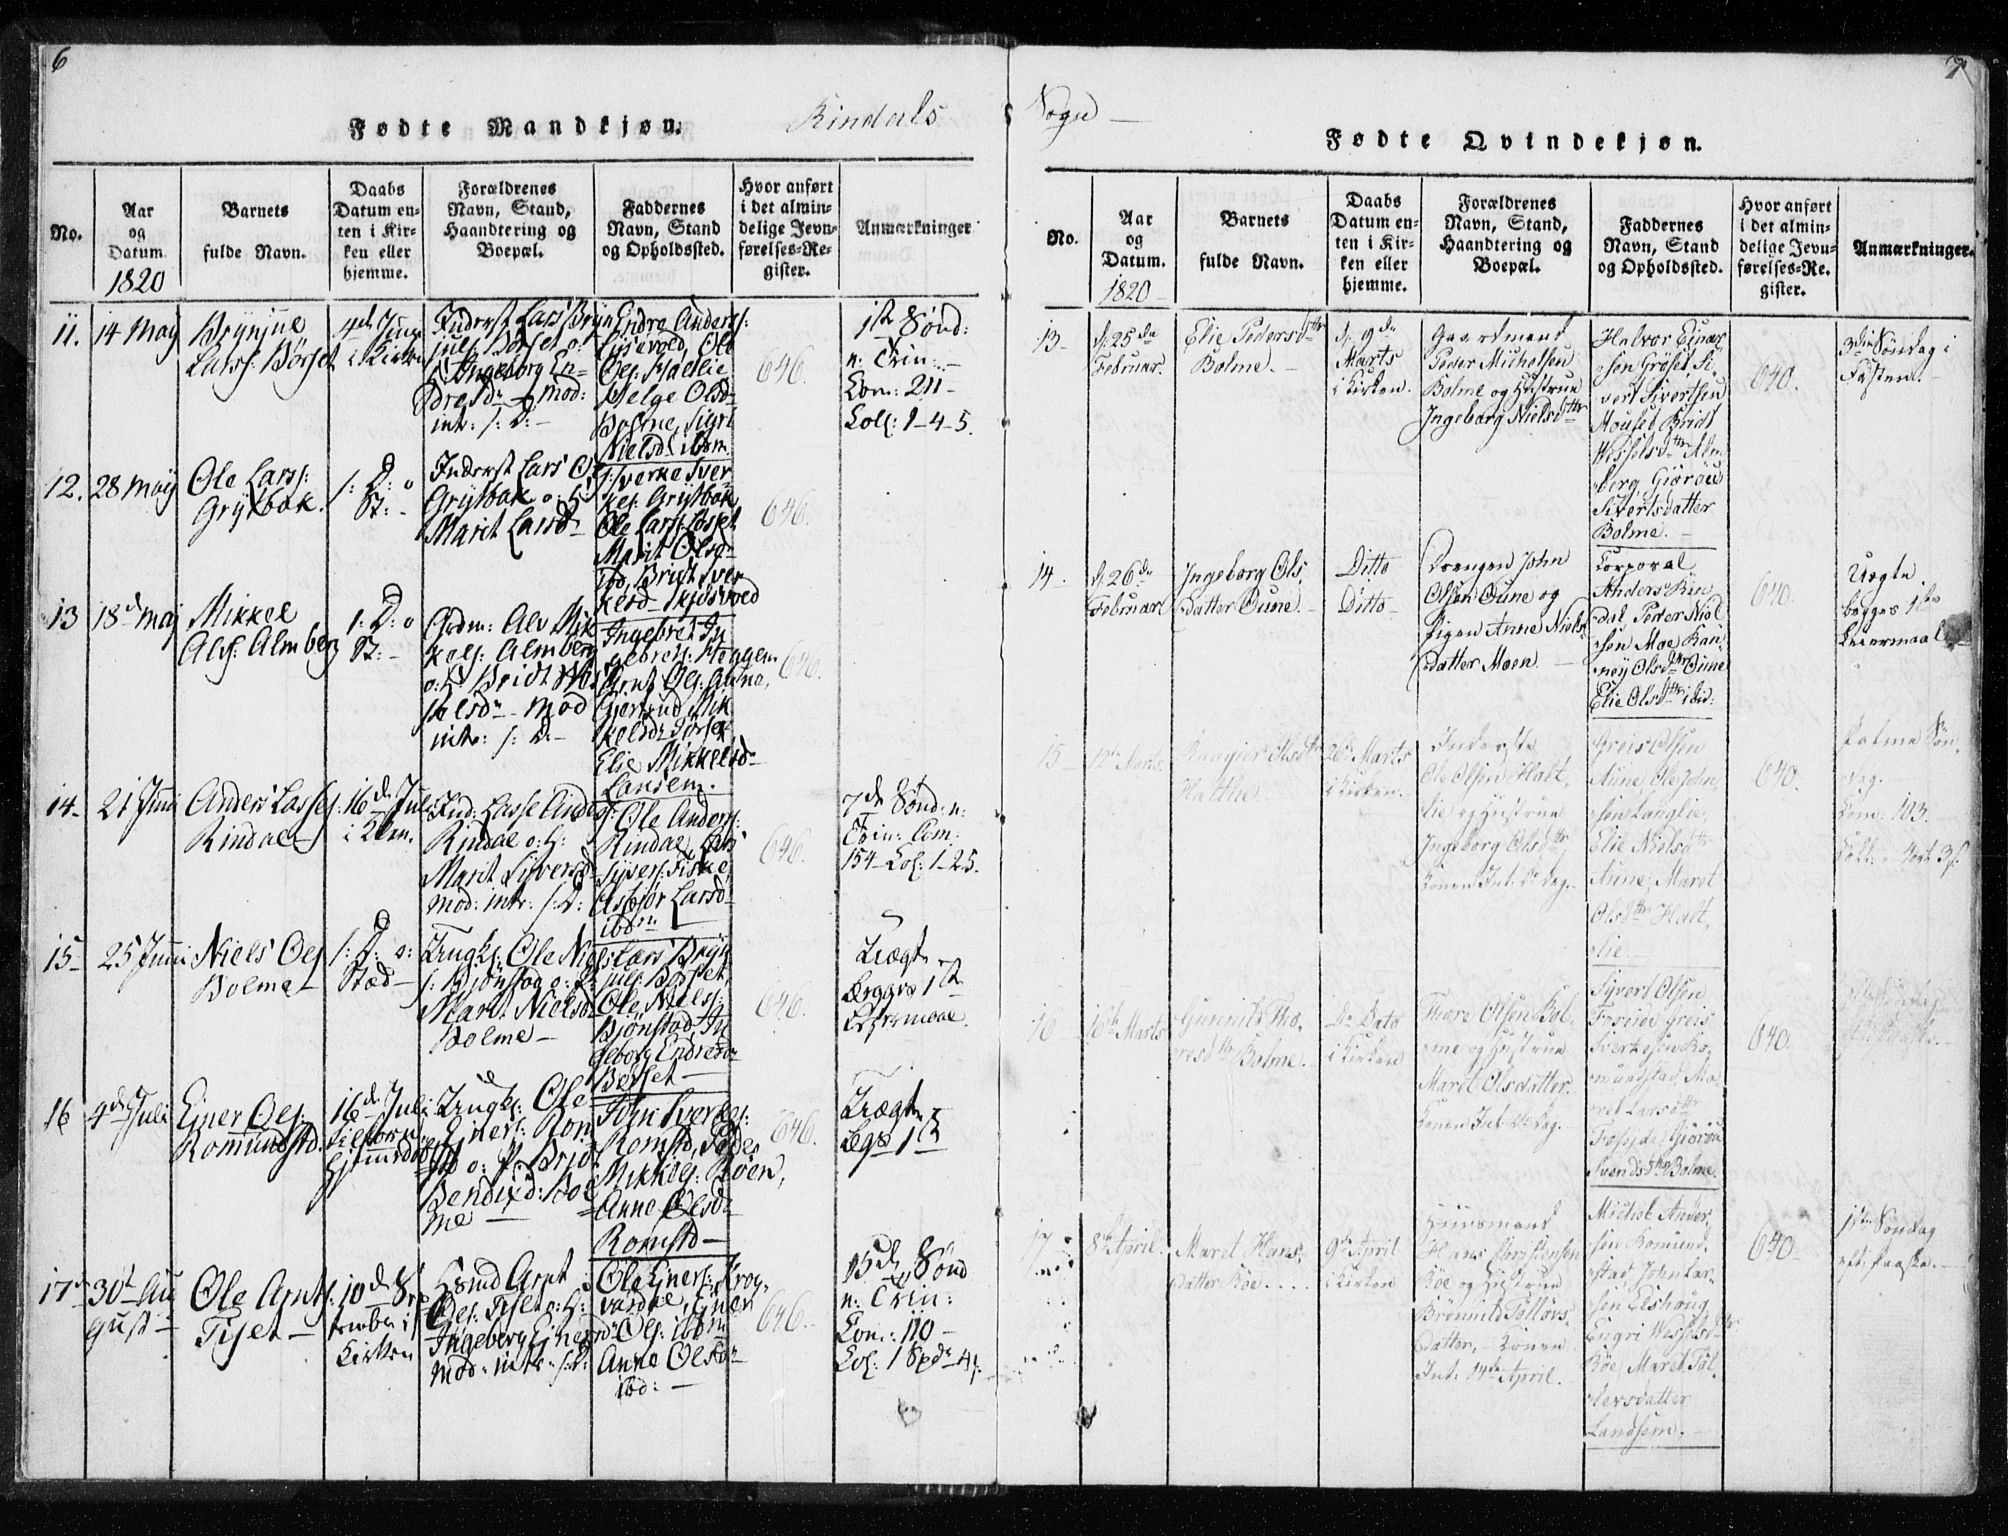 6
Rindals
Fødte Mandkjøn.
No.
Aar
og
Datum
1820
Barnets
fulde Navn.
Daabs
Datum en-
ten i Kir-
ken eller
hjemme.
Forældrenes
Navn, Stand,
Haandtering og
Boepæl.
Faddernes
Navn, Stand
og Opholdssted.
Hvor anført
i det almin-
delige Jevn-
førelses-Re-
gister.
Anmærkninger
11.
14 May
Brynjul
Larss: Børset
4de Juni
i Kirken
Inderst Lars Bryn
juls: Børset o:
Ingeborg En-
dresdr - Mod:
intr: s: D: -
Endre Anders:
Ole
Ols:
Helge Olsd-
Bolme, Sigri
Nielsd: ibdm.
646.
1ste Sønd:
n: Trin: -
Com: 211 -
Coll: 1-4-5.
12.
28 May
Ole Larss:
Grytbak.
s: D: o
St: -
Inderst Lars Ols:
Grytbak o: H:
Marit Larsdr
Sverke Sver
kes: Grytbak
Ole Larss: Løset
Marit Olsd-
ibd, Bridt Sver
kesd-
646.
13
18d May
Mikkel
Als: Almberg
s: D: o
St: -
Grdm: Alv Mik
kels: Almberg
o: H: Bridt Wes
selsdr - Mod
intr: s: D: -
Ingebret In
gebrets: Heggem
Arnt Ols: Aune,
Gjertrud Mik
kelsdr
Elie Mikkelsd-
Landsem. -
646.
14.
21 Juni
Anders Lasses:
Rindal
16de Juli
i Kirken.
Ind: Lasse Anders:
Rindal o: H:
Marit Syversd-
Mod: intr: s: D:
Ole Anders:
Rindal, Lars
Syvers: Fiske
Asbjør Larsd-
ibdm
646.
7de Sønd: n:
Trin: Com:
154 - Col: 1-25.
15-
25 Juni
Niels Ols
Bolme -
s: D: o:
Sted -
Ungk: Ole Niels
s: Bjønstad o: P:
Marit Nielsdr
Bolme -
Lars Bryn
juls: Børset,
Ole Niels:
Bjønstad, In
geborg Endresdr
Børset -
646.
Uægte
Begges 1ste
Leiermaal.
16
4de Juli
Ejner Ols:
Romundstd.
16de Juli
Ungk: Ole
Ejners: Rom
std o: P: Brid
Bendixd: Bol
me -
John Sverkes:
Romstd, Peder
Mikkels: Røen,
Anne Olsd-
Romstd -
646.
Uægte
Begs 1ste
17-
30te Au
gust -
Ole Arnts:
Tiset -
10de Sep
tember i
Kirken
Husmd Arnt
Ols: Tiset o: H:
Ingeborg Ejnersdr
Mod: intr: s: D:
Ole Ejners: Krog-
vatdal, Ejner
Ols: ibdm
Anne Olsdr
ibd: -
646. -
15de Sønd
n: Trin:
Com.: 110 -
Col: 1 Spd- 4s.
7
Sogn -
Fødte Qvindekjøn.
No.
Aar
og
Datum.
1820 -
Barnets
fulde Navn.
Daabs
Datum en-
ten i Kir-
ken eller
hjemme.
Forældrenes
Navn, Stand,
Haandtering og
Boepæl.
Faddernes
Navn, Stand
og Opholdssted.
Hvor anført
i det almin-
delige Jevn-
førelses-Re.
gister.
Anmærkninger.
13 -
d: 25de
Februar.
Elie Pedersdtr
Bolme. -
d: 9de
Marts
i Kirken.
Gaardmand
Peder Michelsen
Bolme og Hustrue
Ingeborg Nielsdtr
Halvor Einar
sen Grøset, Si-
vert Sivertsen
Mouset, Bridt
Wesselsdtr Alm
berg, Giørou
Sivertsdatter
Bolme. -
640.
3die Søndag i
Fasten. -
14 -
d: 26de
Februar
Ingeborg Ols
datter Oune. -
Ditto
Ditto -
Drengen John
Olsen Oune og
Pigen Anne Niels
datter Moen. -
Corporal
Anders Rin
dal, Peder Niel
sen Moe, Ran-
nøy Olsdtr Oune
Elie Olsdtr ibid:
640.
Uægte
begges 1ste
Leiermaal
15 -
12te Marts
Olsdtr
Haltlie. -
26de Marts
i Kirken. -
Inderste
Ole Olsen Halt-
lie og Hustrue
Ingeborg Olsdtr,
Konen Int: Do Dag. -
Greis Olsen
Aune, Ole John-
sen Langlie,
Elie Nielsdtr
Aune, Maret
Olsdtr Halt-
lie. -
640.
Palme Søn-
dag.
Com: 103.
Coll: -
16
16de Marts
Gunnild Tho-
resdtr Bolme.
Do Dato
i Kirken
Thore Olsen Bol-
me og Hustrue
Maret Olsdatter.
Konen Int: Do Dag. -
Sivert Olsen
Greis
Sverkesen Ro-
mundstad, Ma-
ret Larsdtr
Giørou
Svendsdtr Bolme.
640.
17 -
8de April.
Maret Hans-
datter Röe. . . . .
9de April
i Kirken
Huusmand
Hans Christensen
Röe og Hustrue
Brönnild Tollovs-
datter, - Konen
Int: 14de April. -
Michel Ander-
sen Romund-
stad, John Lar-
sen Elshoug
Engri Wesselsdtr
Röe, Maret Tol-
levsdatter
Landsem. -
640 -
1ste Søndag
eft: Paaske. -